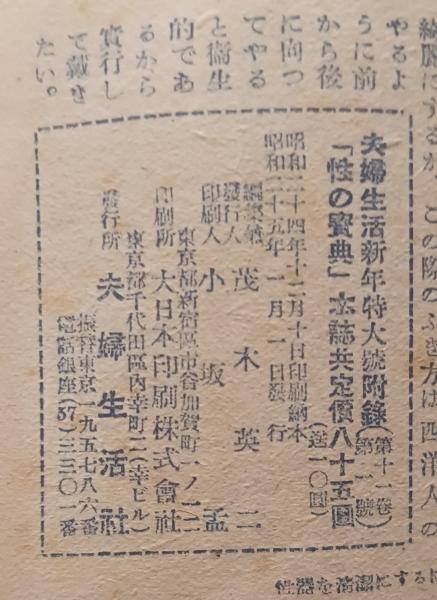 綺麗にするか、この際のふき方は西洋人の
やるよ
うに前
から後
に向つ
てやる
と衞生
的であ
るから
實行し
て戴き
たい。
夫婦生活新年特大號附錄(第十一卷第一號)
「性の寶典」本誌共定價八十五圓(送一〇圓)
昭和二十四年十二月十日印刷納本
昭和二十五年一月一日發行
編集兼
發行人 茂木英二
印刷人 小坂孟
東京都新宿區市谷加賀町一ノ一二
印刷所 大日本印刷株式會社
東京都千代田區內幸町二(幸ビル)
發行所 夫婦生活社
振替東京一九五七八六番
電話銀座(57)三三〇一番
性器を清潔にするに